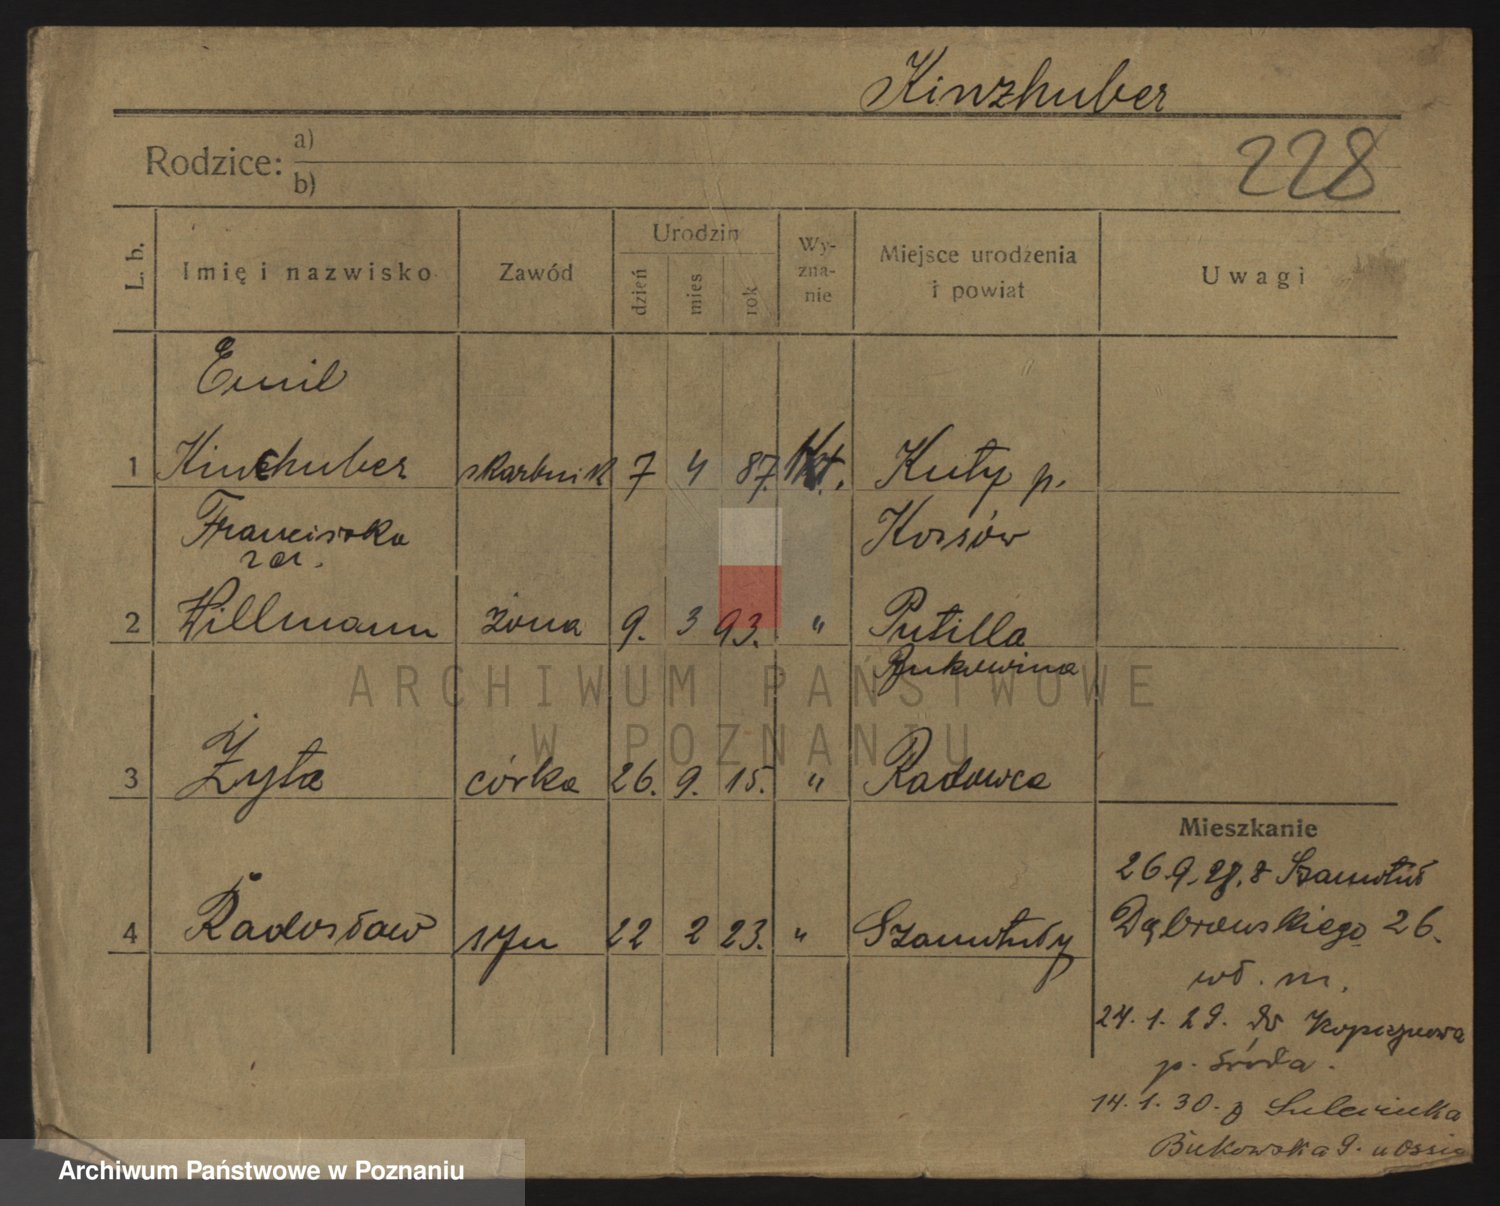 Kinzhuber
228
Rodzice: a)
b)
L. b.
Imię i nazwisko
Zawód
Urodzin
dzień
mies
rok
Wy-
zna-
nie
Miejsce urodzenia
i powiat
Uwagi
Emil
1 Kinzhuber skarbnik 7 4 87. kt. Kuty p.
Franciszka Kossów
zd.
2 Willmann żona 9. 3 93. " Putilla
Bukowina
ARCHIWUM PAŃSTWOWE
W POZNANIU
3 Zyta córka 26. 9. 15. " Radowca
Mieszkanie
26.9.27. z Szamotuł
4 Radosław syn 22 2 23. " Szamotuły
Dąbrowskiego 26.
wł. m.
24.1.29. do
p. Środa.
14.1.30. z Sulęcinka
Bukowska 9. u
Archiwum Państwowe w Poznaniu